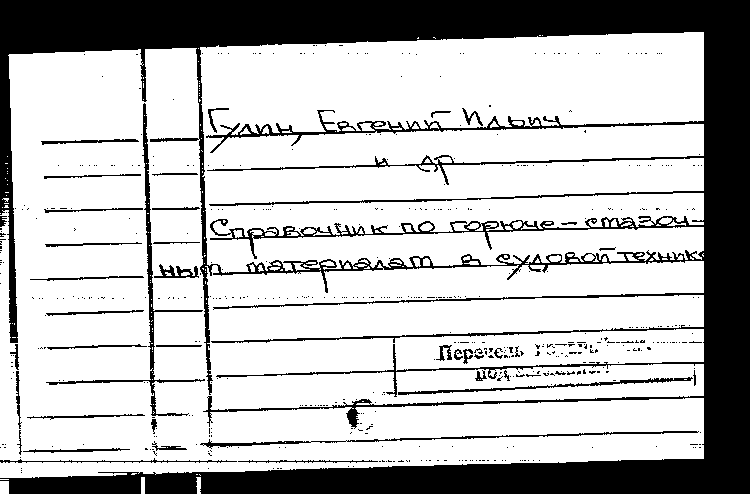 Гулин, Евгений Ильич
и др
Справочник по горюче-смазоч-
ным материалам в судовой технике
Перечень
под